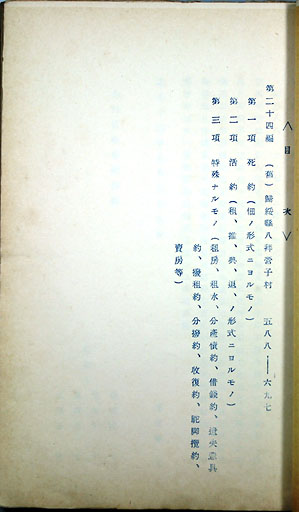 〈目次〉
第二十四編 (舊)歸綏縣八拜營子村 五八八——六九七
第一項 死約(佃ノ形式ニヨルモノ)
第二項 活約(租、推、典、退、ノ形式ニヨルモノ)
第三項 特殊ナルモノ(租房、租水、分產憤約、借錢約、過失惹具
約、撥租約、分撥約、收復約、駝脚攬約、
賣房等)